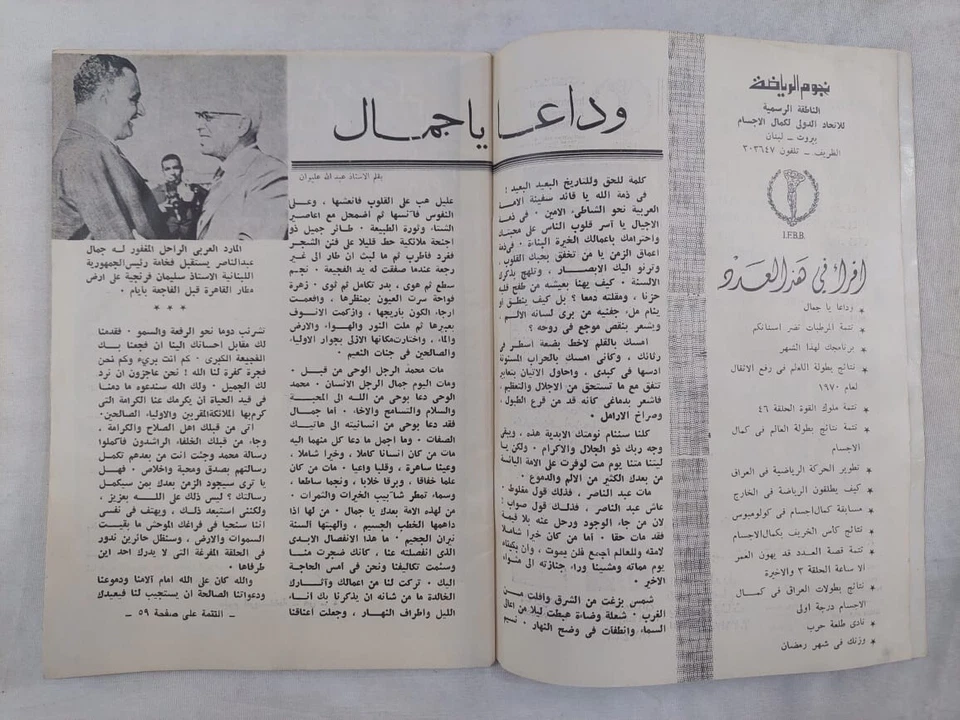 نجوم الرياضة
الناطقة الرسمية
للاتحاد الدولى لكمال الاجسام
بيروت - لبنان
الظريف - تلفون ٣٠٣٦٤٧
I.F.B.B.
اقرأ فى هذا العدد
* وداعا يا جمال
* تتمة المرطبات تضر اسنانكم
* برنامجك لهذا الشهر
* نتائج بطولة العالم فى رفع الاثقال
لعام ١٩٧٠
* تتمة ملوك القوة الحلقة ٤٦
* تتمة نتائج بطولة العالم فى كمال
الاجسام
* تطوير الحركة الرياضية فى العراق
* كيف يطلقون الرياضة فى الخارج
* مسابقة كمال اجسام فى كولومبوس
* نتائج كأس الخريف بكمال الاجسام
* تتمة قصة العدد قد يهون العمر
الا ساعة الحلقة ٣ والاخيرة
* نتائج بطولات العراق فى كمال
الاجسام درجة اولى
* نادى طلعة حرب
* وزنك فى شهر رمضان
وداعا يا جمال
بقلم الاستاذ عبد الله علوان
كلمة للحق وللتاريخ البعيد البعيد !
فى ذمة الله يا قائد سفينة الامة
العربية نحو الشاطىء الامين ٠ فى ذمة
الاجيال يا آسر قلوب الناس على محبتك
واحترامك باعمالك الخيرة البناءة ٠ فى ذمة
اعماق الزمن يا من تخفق بحبك القلوب ،
وترنو اليك الابصار ، وتلهج بذكرك
الالسنة ٠ كيف يهنا بعيشه من طفح قلبه
حزنا ، ومقلته دمعا ؟ بل كيف ينطق او
ينام ملء جفنيه من يرى لسانه الالم ،
ويشعر بنقص موجع فى روحه ؟
امسك بالقلم لاخط بضعة اسطر فى
رثائك ، وكأنى امسك بالحراب المسنونة
ادسها فى كبدى ٠ واحاول الاتيان بتعابير
تتفق مع ما تستحق من الاجلال والتعظيم ،
فاشعر بدماغى كأنه قد من قرع الطبول ،
وصراخ الارامل ٠
كلنا سننام نومتك الابدية هذه ، ويبقى
وجه ربك ذو الجلال والاكرام ٠ ولكن يا
ليتنا متنا يوم مت لوفرت على الامة اليائسة
من بعدك الكثير من الالم والدموع ٠
مات عبد الناصر ، فذلك قول مغلوط ٠
عاش عبد الناصر ، فذلك قول صواب !
لان من جاء الوجود ورحل عنه بلا قيمة
فقد مات حقا ٠ اما من كان خيرا شاملا
لامته وللعالم اجمع فلن يموت ، وان بكيناه
يوم مماته ومشينا وراء جنازته الى مثواه
الاخير ٠
شمس بزغت من الشرق وافلت من
الغرب ٠ شعلة وضاءة هبطت ليلا من اعالى
السماء وانطفات فى وضح النهار ٠ نسيم
عليل هب على القلوب فانعشها ، وعلى
النفوس فآنسها ثم اضمحل مع اعاصير
الشتاء وثورة الطبيعة ٠ طائر جميل ذو
اجنحة ملائكية حط قليلا على فنن الشجر
فغرد فاطرب ثم ما لبث ان طار الى غير
رجعة عندما صفقت له يد الفجيعة ٠ نجم
سطع ثم هوى ، بدر تكامل ثم ثوى ٠ زهرة
فواحة سرت العيون بمنظرها ، وافعمت
ارجاء الكون بأريجها ، وازكمت الانوف
بعبيرها ثم ملت النور والهواء والارض
والماء ، واختارت مكانها الازلى بجوار الاولياء
والصالحين فى جنات النعيم ٠
مات محمد الرجل الوحى من قبل ٠
ومات اليوم جمال الرجل الانسان ٠ محمد
الوحى دعا بوحى من الله الى المحبة
والسلام والتسامح والاخاء ٠ أما جمال
فقد دعا بوحى من انسانيته الى هاتيك
الصفات ٠ وما اجمل ما دعا كل منهما اليه
مات من كان انسانا كاملا ، وخيرا شاملا ،
وعينا ساهرة ، وقلبا واعيا ٠ مات من كان
علما خفاقا ، وبرقا خلابا ، ونجما ساطعا ،
وسماء تمطر شآبيب الخيرات والثمرات ٠
من لهذه الامة بعدك يا جمال ٠ من لها اذا
داهمها الخطب الجسيم ، والهبتها السنة
نيران الجحيم ٠ ما هذا الانفصال الابدى
الذى انفصلته عنا ، كانك ضجرت منا
وسئمت تكاليفنا ونحن فى امس الحاجة
اليك ٠ تركت لنا من اعمالك وآثارك
الخالدة ما من شأنه ان يذكرنا بك انـاء
الليل واطراف النهار ، وجعلت أعناقنا
المارد العربى الراحل المغفور له جمال
عبدالناصر يستقبل فخامة رئيس الجمهورية
اللبنانية الاستاذ سليمان فرنجية على ارض
مطار القاهرة قبل الفاجعة بأيام ٠
* * *
تشرئب دوما نحو الرفعة والسمو ٠ فقدمنا
لك مقابل احسانك الينا ان فجعنا بك
الفجيعة الكبرى ٠ كم انت برىء وكم نحن
فجرة كفرة لنا الله ! نحن عاجزون ان نرد
لك الجميل ٠ ولك الله سندعوه ما دمنا
فى قيد الحياة ان يكرمك عنا الكرامة التى
كرم بها الملائكة المقربين والاولياء الصالحين ٠
اتى من قبلك اهل الصلاح والكرامة ،
وجاء من قبلك الخلفاء الراشدون فأكملوا
رسالة محمد وجئت انت من بعدهم تكمل
رسالتهم بصدق ومحبة واخلاص ٠ فهل
يا ترى سيجود الزمن بعدك بمن سيكمل
رسالتك ؟ ليس ذلك على الله بعزيز ،
ولكنى استبعد ذلك ، ويهتف فى نفسى
اننا سنحيا فى فراغك الموحش ما بقيت
السموات والارض ، وسنظل حائرين ندور
فى الحلقة المفرغة التى لا يدرك احد اين
طرفاها ٠
والله كان على الله امام آلامنا ودموعنا
ودعواتنا الصالحة ان يستجيب لنا فيعيدك
- التتمة على صفحة ٥٩ -